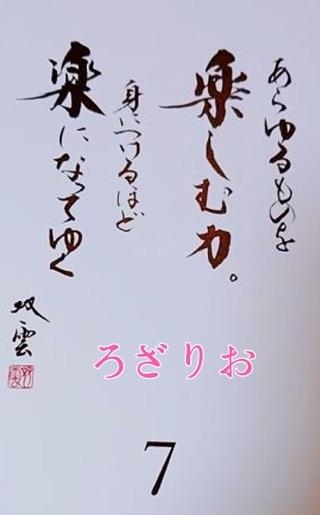 あらゆるものを
楽しむ力。
身につけるほど
楽になってゆく
双雲
ろざりお
7